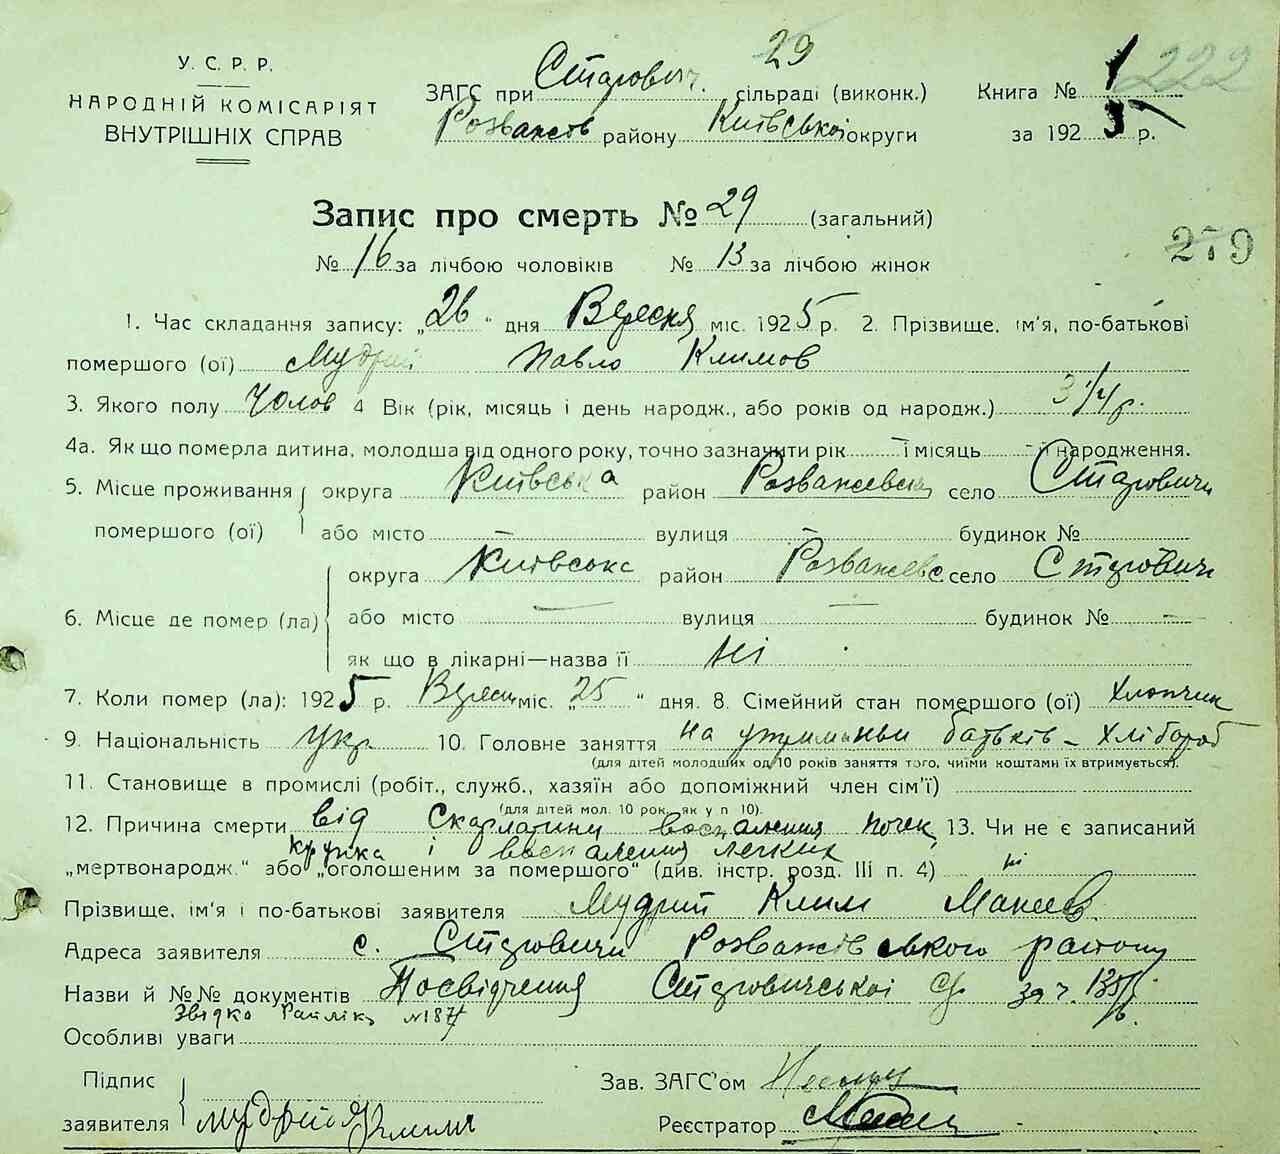 У. С. Р. Р.
НАРОДНІЙ КОМІСАРІЯТ
ВНУТРІШНІХ СПРАВ
29
222
ЗАГС при Стягович. сільраді (виконк.) Книга № 1
Розважів району Київської округи за 1925 р.
Запис про смерть № 29 (загальний)
279
№ 16 за лічбою чоловіків № 13 за лічбою жінок
1. Час складання запису: „26" дня Вересня міс. 1925 р. 2. Прізвище, ім'я, по-батькові
помершого (ої) Мудрий Павло Климов
3. Якого полу Чолов 4 Вік (рік, місяць і день народж., або років од народж.) 3 1/4 р.
4а. Як що померла дитина, молодша від одного року, точно зазначити рік і місяць її народження.
5. Місце проживання округа Київська район Розважевськ село Стяговичи
помершого (ої) або місто вулиця будинок №
округа Київська район Розважевс село Стяговичи
6. Місце де помер (ла) або місто вулиця будинок №
як що в лікарні—назва її ні
7. Коли помер (ла): 1925 р. Вересн міс. „25" дня. 8. Сімейний стан помершого (ої) Хлопчик
9. Національність Укр. 10. Головне заняття на утриманьи батьків – Хлібороб
(для дітей молодших од 10 років заняття того, чиїми коштами їх втримується).
11. Становище в промислі (робіт., служб., хазяїн або допоміжний член сім'ї)
(для дітей мол. 10 рок. як у п 10).
12. Причина смерти від Скарлатини воспаления почек, 13. Чи не є записаний
крупка і воспаления легких
„мертвонародж." або „оголошеним за помершого" (див. інстр. розд. III п. 4) ні
Прізвище, ім'я і по-батькові заявителя Мудрий Клим
Адреса заявителя с. Стяговичи Розважівського району
Назви й №№ документів Посвідчення Стяговичської С/р за ч.
№187
Особливі уваги
Підпис Зав. ЗАГС'ом
заявителя Мудрий Реєстратор